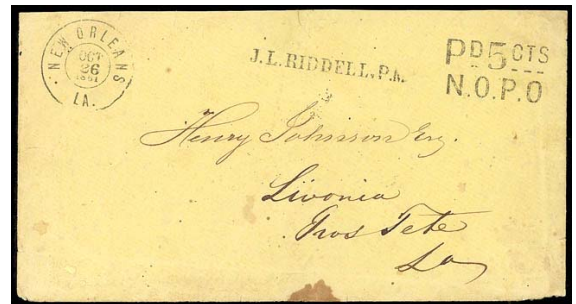 NEW ORLEANS
OCT
26
1861
LA.
J.L. RIDDELL. P.M.
PD 5 CTS
N.O.P.O
Henry Johnson Esq.
Livonia
Gros Tete
La